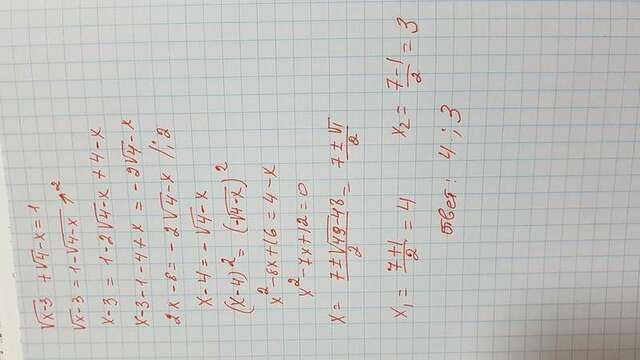 √x-3 + √4-x = 1
√x-3 = 1-√4-x ↑²
x-3 = 1-2√4-x + 4-x
x-3-1-4+x = -2√4-x
2x-8 = -2√4-x /:2
x-4 = -√4-x
(x-4)² = (-√4-x)²
x²-8x+16 = 4-x
x²-7x+12=0
x = 7±√49-48/2 = 7±√1/2
x₁ = 7+1/2 = 4 x₂ = 7-1/2 = 3
Ответ: 4 ; 3